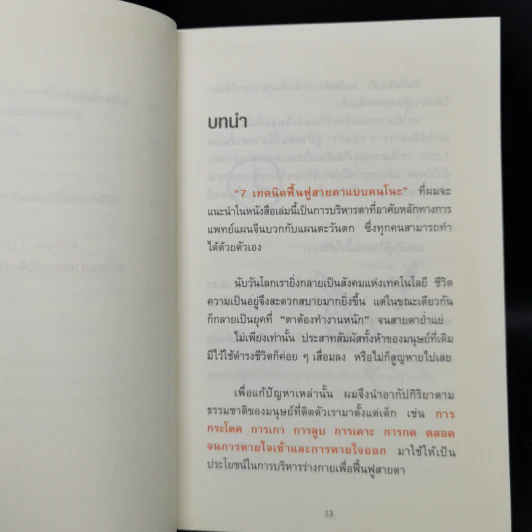 บทนำ
"7 เทคนิคฟื้นฟูสายตาแบบคนโนะ" ที่ผมจะ
แนะนำในหนังสือเล่มนี้เป็นการบริหารตาที่อาศัยหลักทางการ
แพทย์แผนจีนบวกกับแผนตะวันตก ซึ่งทุกคนสามารถทำ
ได้ด้วยตัวเอง
นับวันโลกเรายิ่งกลายเป็นสังคมแห่งเทคโนโลยี ชีวิต
ความเป็นอยู่จึงสะดวกสบายมากยิ่งขึ้น แต่ในขณะเดียวกัน
ก็กลายเป็นยุคที่ "ตาต้องทำงานหนัก" จนสายตาย่ำแย่
ไม่เพียงเท่านั้น ประสาทสัมผัสทั้งห้าของมนุษย์ที่เดิม
มีไว้ใช้ดำรงชีวิตก็ค่อย ๆ เสื่อมลง หรือไม่ก็สูญหายไปเลย
เพื่อแก้ปัญหาเหล่านั้น ผมจึงนำอากัปกิริยาตาม
ธรรมชาติของมนุษย์ที่ติดตัวเรามาตั้งแต่เด็ก เช่น การ
กระโดด การเกา การลูบ การเคาะ การกด ตลอด
จนการหายใจเข้าและการหายใจออก มาใช้ให้เป็น
ประโยชน์ในการบริหารร่างกายเพื่อฟื้นฟูสายตา
13